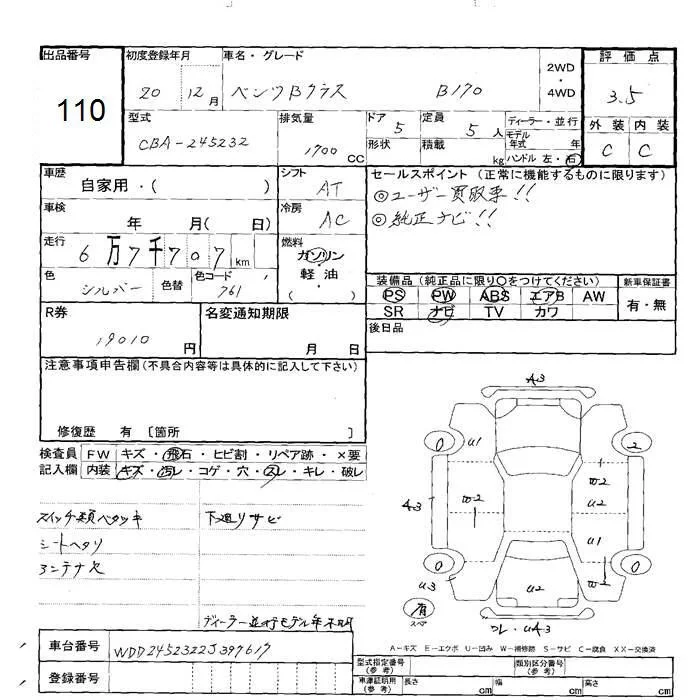 出品番号
110
初度登録年月
20 12月
車名・グレード
ベンツBクラス B170
2WD
・
4WD
評価点
3.5
型式
CBA-245232
排気量
1700 CC
ドア
5
定員
5人
ディーラー・並行
モデル年式 年
形状
積載
kg
ハンドル 左・右
外装 内装
C C
車歴
自家用・( )
シフト
AT
セールスポイント(正常に機能するものに限ります)
◎ユーザー買取車!!
◎純正ナビ!!
車検
年 月( 日)
冷房
AC
走行
6万7千707km
燃料
ガソリン
・
軽油
( )
色
シルバー
色替
色コード
761
装備品(純正品に限り○をつけてください)
新車保証書
PS PW ABS エアB AW
有・無
SR ナビ TV カワ
R券
19010円
名変通知期限
月 日
後日品
注意事項申告欄(不具合内容等は具体的に記入して下さい)
修復歴 有 [箇所 ]
検査員記入欄
FW キズ・飛石・ヒビ割・リペア跡・×要
内装 キズ・汚レ・コゲ・穴・スレ・キレ・破レ
スイッチ類ベタツキ 下廻りサビ
シートヘタリ
アンテナ欠
ディーラー並行モデル年不明
A3
0 U1 2
W2
A3 W2 U2
U1
0 0
W2
U3 U2
有
スペ
スレ・UA3
A-キズ E-エクボ U-凹み W-補修跡 S-サビ C-腐食 XX-交換済
車台番号
WDD2452322J397617
登録番号
型式指定番号(参考)
類別区分番号(参考)
車庫証明用(参考)
長さ cm
幅 cm
高さ cm